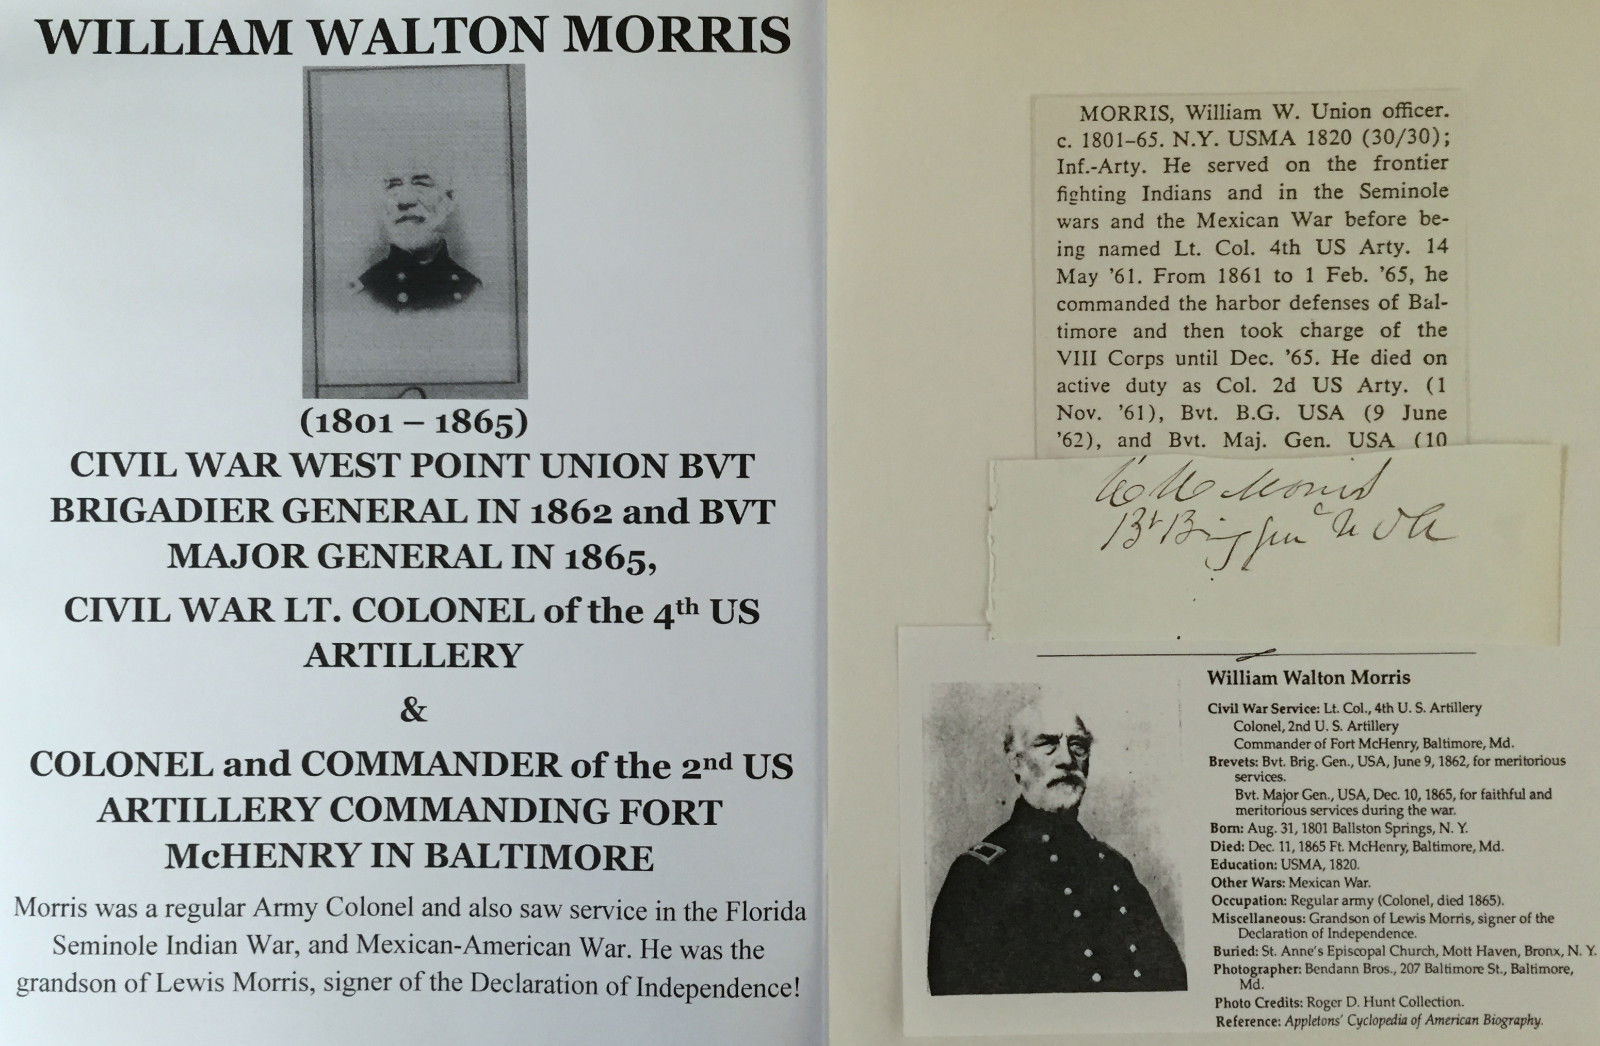 WILLIAM WALTON MORRIS
(1801 – 1865)
CIVIL WAR WEST POINT UNION BVT
BRIGADIER GENERAL IN 1862 and BVT
MAJOR GENERAL IN 1865,
CIVIL WAR LT. COLONEL of the 4th US
ARTILLERY
&
COLONEL and COMMANDER of the 2nd US
ARTILLERY COMMANDING FORT
McHENRY IN BALTIMORE
Morris was a regular Army Colonel and also saw service in the Florida
Seminole Indian War, and Mexican-American War. He was the
grandson of Lewis Morris, signer of the Declaration of Independence!
MORRIS, William W. Union officer.
c. 1801–65. N.Y. USMA 1820 (30/30);
Inf.-Arty. He served on the frontier
fighting Indians and in the Seminole
wars and the Mexican War before be-
ing named Lt. Col. 4th US Arty. 14
May '61. From 1861 to 1 Feb. '65, he
commanded the harbor defenses of Bal-
timore and then took charge of the
VIII Corps until Dec. '65. He died on
active duty as Col. 2d US Arty. (1
Nov. '61), Bvt. B.G. USA (9 June
'62), and Bvt. Maj. Gen. USA (10
W W Morris
Bt Brig Gen U S A
William Walton Morris
Civil War Service: Lt. Col., 4th U. S. Artillery
Colonel, 2nd U. S. Artillery
Commander of Fort McHenry, Baltimore, Md.
Brevets: Bvt. Brig. Gen., USA, June 9, 1862, for meritorious
services.
Bvt. Major Gen., USA, Dec. 10, 1865, for faithful and
meritorious services during the war.
Born: Aug. 31, 1801 Ballston Springs, N. Y.
Died: Dec. 11, 1865 Ft. McHenry, Baltimore, Md.
Education: USMA, 1820.
Other Wars: Mexican War.
Occupation: Regular army (Colonel, died 1865).
Miscellaneous: Grandson of Lewis Morris, signer of the
Declaration of Independence.
Buried: St. Anne's Episcopal Church, Mott Haven, Bronx, N. Y.
Photographer: Bendann Bros., 207 Baltimore St., Baltimore,
Md.
Photo Credits: Roger D. Hunt Collection.
Reference: Appletons' Cyclopedia of American Biography.